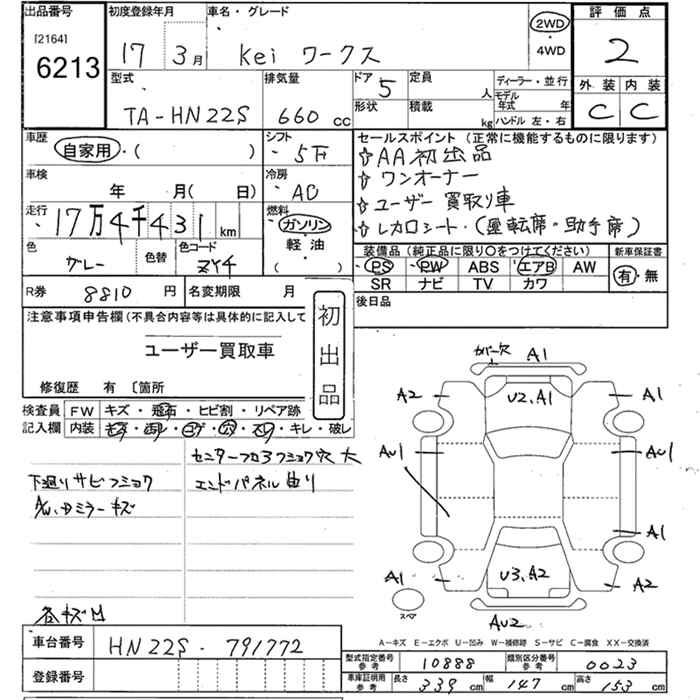 出品番号 初度登録年月 車名・グレード 評価点
[2164]
6213
17 3月 Kei ワークス 2WD ・4WD 2
型式 排気量 ドア 5 定員 人 ディーラー・並行 外装 内装
TA-HN22S 660 cc 形状 積載 kg モデル年式 年 ハンドル 左・右 C C
車歴 シフト セールスポイント(正常に機能するものに限ります)
自家用・( ) 5F AA初出品
車検 冷房 ワンオーナー
年 月(日) AC ユーザー買取り車
走行 燃料 レカロシート・(運転席・助手席)
17万4千431km ガソリン
色 色替 色コード 軽油 装備品(純正品に限り○をつけてください) 新車保証書
グレー ZY4 ( ) PS PW ABS エアB AW 有・無
SR ナビ TV カワ
R券 8810 円 名変期限 月 後日品
注意事項申告欄(不具合内容等は具体的に記入して 初出品
ユーザー買取車
修復歴 有 〔箇所
検査員 FW キズ・飛石・ヒビ割・リペア跡
記入欄 内装 キズ・汚レ・コゲ・穴・スレ・キレ・破レ
センターフロアフショク穴大
下廻りサビフショク エンドパネル曲り
A/W、ドミラーキズ
各キズ凹
カバー欠 A1
A2 U2.A1 A1
AU1 AU1
A1
A1 U3.A2 A2
スペア AU2
A-キズ E-エクボ U-凹み W-補修跡 S-サビ C-腐食 XX-交換済
車台番号 HN22S-791772
型式指定番号 参考 10888 類別区分番号 参考 0023
登録番号
車庫証明用 参考 長さ 339 cm 幅 147 cm 高さ 153 cm